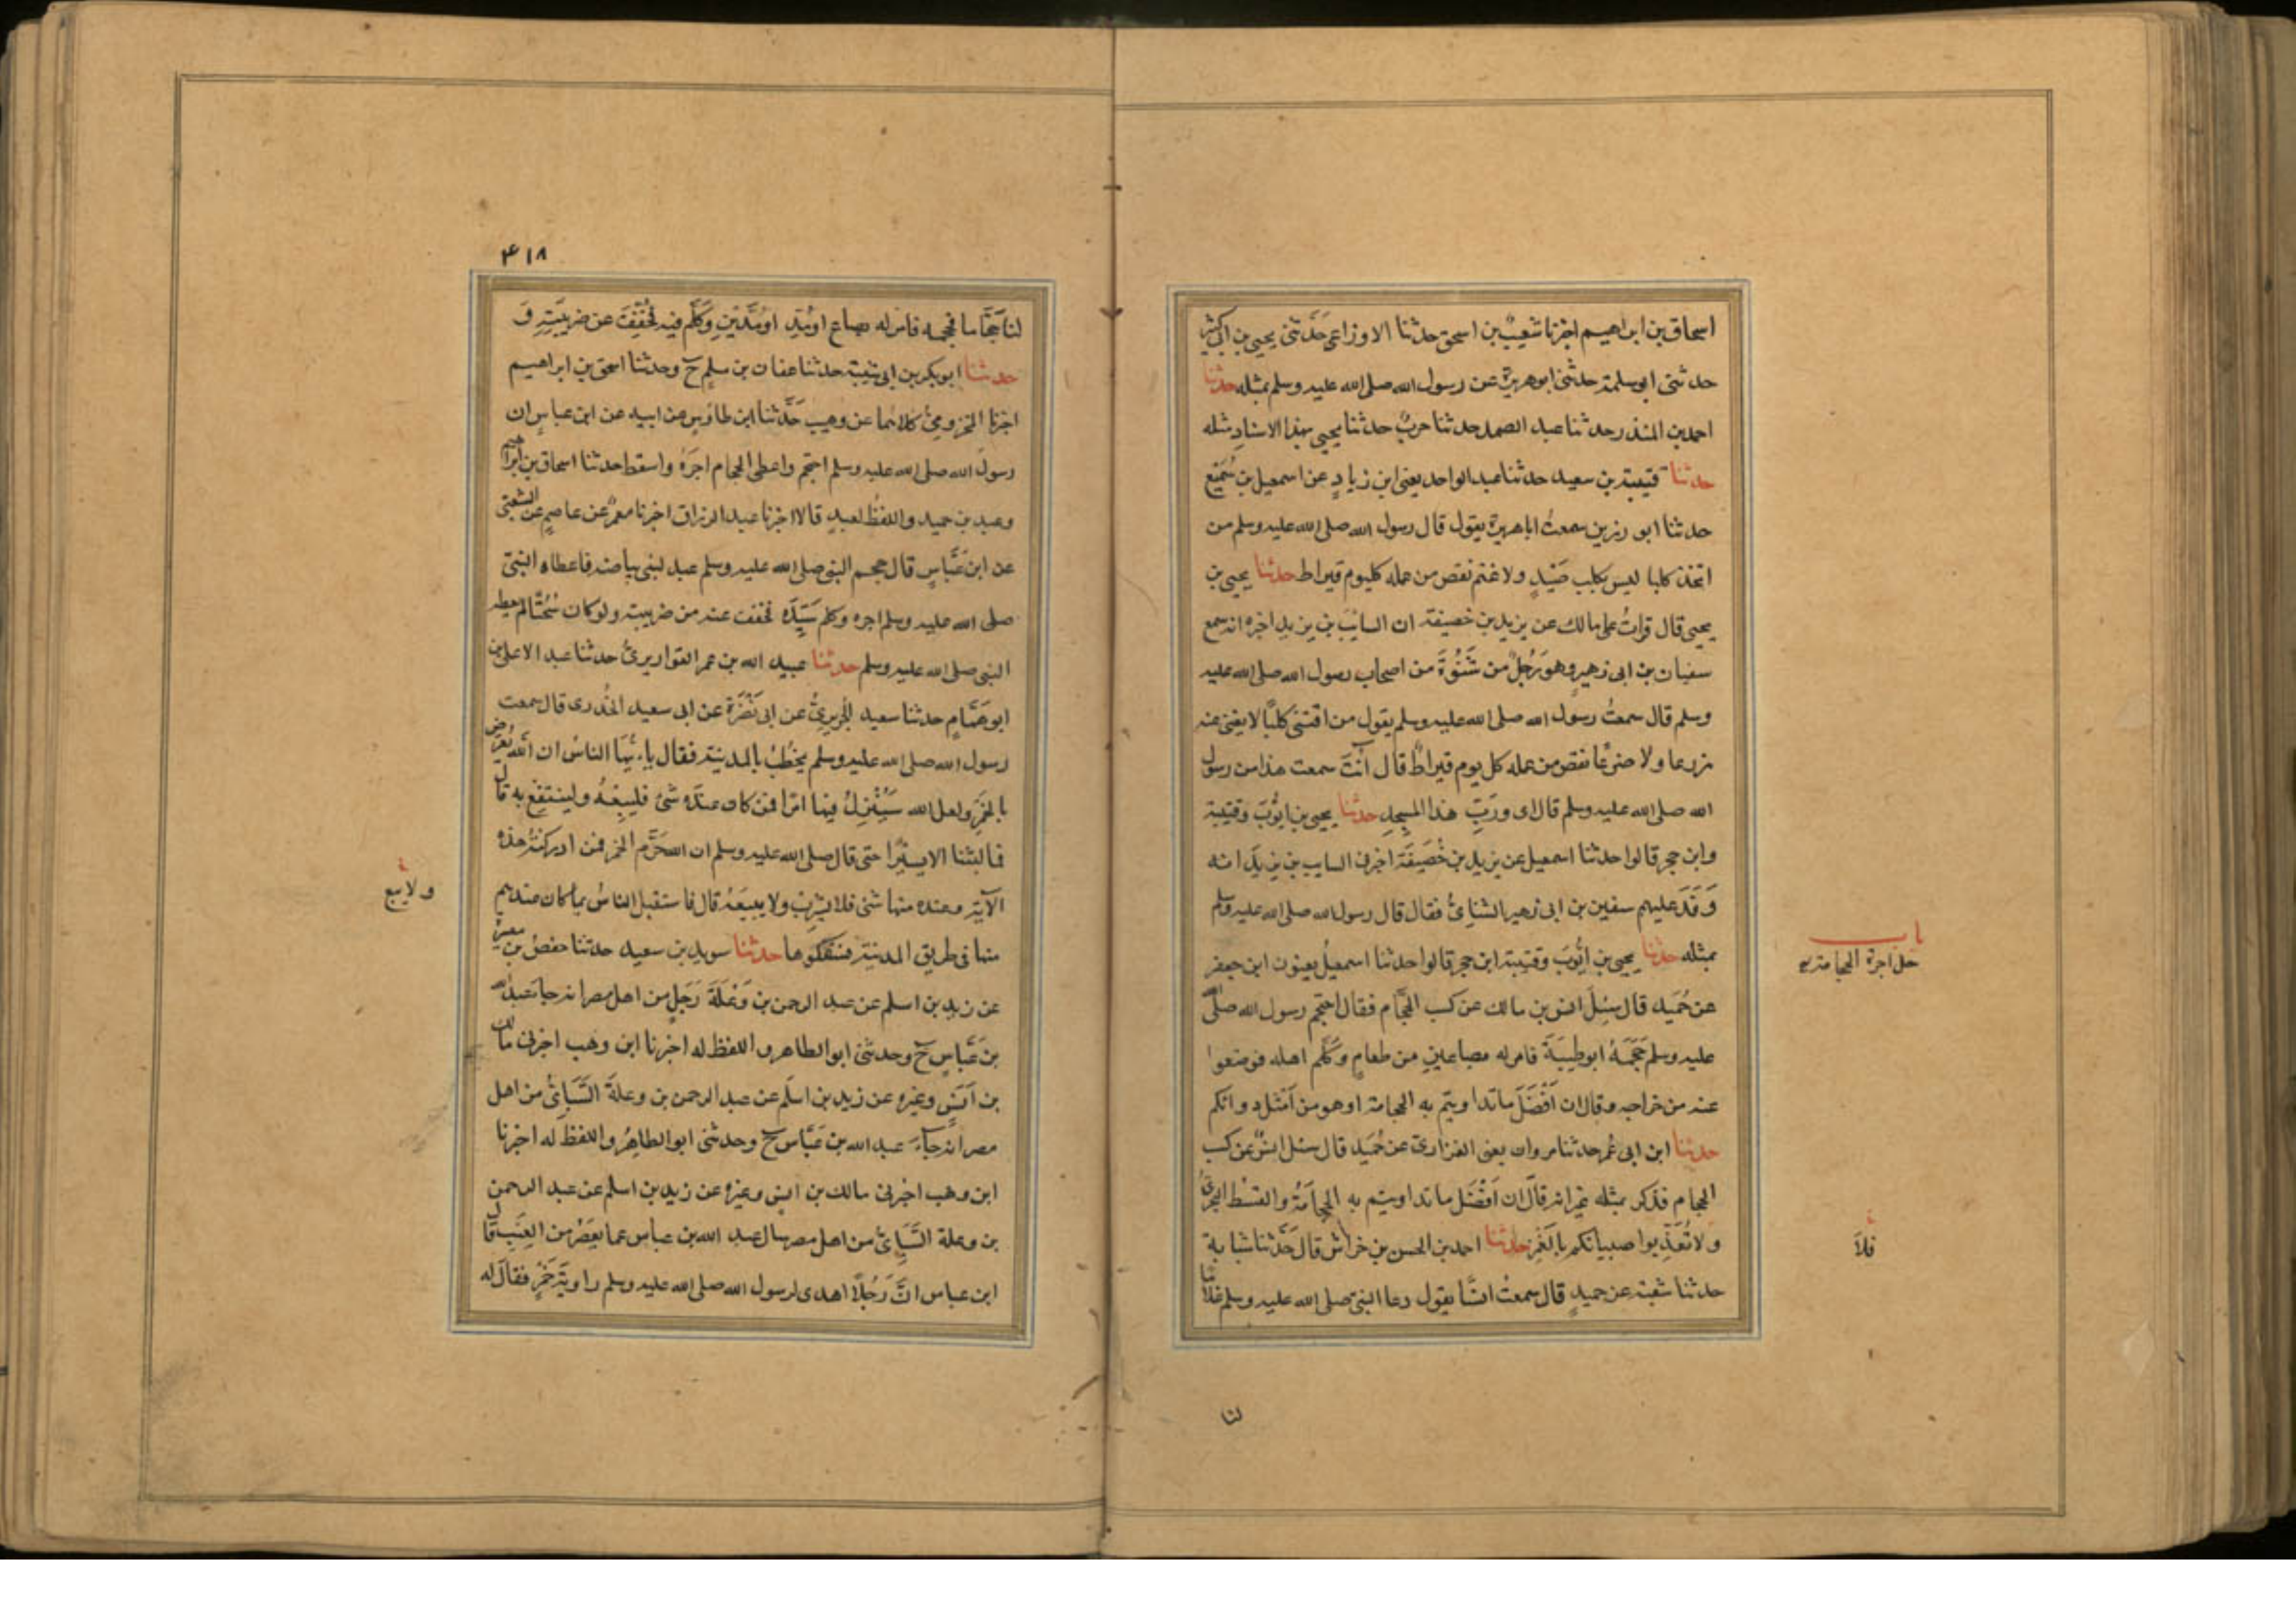 اسحاق بن ابراهيم اخبرنا شعيبُ بن اسحق حدثنا الاوزاعي حَدَّثني يحيى بن ابي كثير
حدثنى ابو سلمة حدثنى ابو هريرة عن رسول الله صلى الله عليه وسلم بمثله حدثنا
احمد بن المنذر حدثنا عبد الصمد حدثنا حربٌ حدثنا يحيى بهذا الاسنادِ مثله
حدثنا قتيبة بن سعيد حدثنا عبد الواحد يعنى ابن زيادٍ عن اسمعيل بن سُمَيْع
حدثنا ابو رزين سمعتُ ابا هريرة يقول قال رسول الله صلى الله عليه وسلم من
اتخذ كلبا ليس بكلب صَيْدٍ ولا غنم نقص من عمله كل يوم قيراط حدثنا يحيى بن
يحيى قال قراتُ على مالك عن يزيد بن خصيفة ان السائبَ بن يزيد اخبره انه سمع
سفيان بن ابى زهيرٍ وهو رَجُلٌ من شَنُوْةَ من اصحاب رسول الله صلى الله عليه
وسلم قال سمعتُ رسول الله صلى الله عليه وسلم يقول من اقتنى كلبًا لا يغنى عنه
زرعا ولا ضرعًا نقص من عمله كل يوم قيراطٌ قال آنتَ سمعت هذا من رسول
الله صلى الله عليه وسلم قال اى ورَبِّ هذا المسجدِ حدثنا يحيى بن ايُّوبَ وقتيبة
وابن حجر قالوا حدثنا اسمعيل عن يزيد بن خُصَيفَة اخبرنى السايب بن يزيدَ انه
وَفَدَ عليهم سفين بن ابى زهير الشنائىُّ فقال قال رسول الله صلى الله عليه وسلم
بمثله حدثنا يحيى بن ايُّوبَ وقتيبة ابن حجر قالوا حدثنا اسمعيلُ يعنون ابن جعفر
عن حُمَيد قال سُئِلَ انس بن مالك عن كسب الحَجَّام فقال احتجم رسول الله صلى الله
عليه وسلم حَجَمَهُ ابو طيبَةَ فامر له بصاعينِ من طعامٍ وكَلَّم اهله فوضعوا
عنه من خراجه وقال ان اَفْضَلَ ما تداويتم به الحجامة او هو من اَمْثَلِ دوائكم
حدثنا ابن ابى عُمر حدثنا مروان يعنى الفزارى عن حُمَيد قال سئل انسٌ عن كسب
الحجام فذكر بمثله غير انه قال ان اَفْضَلَ ما تداويتم به الحِجامَةُ والقسط البحرىُّ
ولا تُعَذِّبوا صبيانكم بالغَمْز حدثنا احمد بن الحسن بن خراش قال حَدَّثنا شبابة
حدثنا شعبة عن حميدٍ قال سمعتُ انسًا يقول دعا النبىّ صلى الله عليه وسلم غلاما
باب
حل اجرة الحجامة
فلا
لنا
٤١٨
لنا حَجَّاما فحجمه فامر له بصاعٍ او مُدٍّ او مُدَّيْنِ وكَلَّم فيه فخُفِّفَ عن ضريبَتِهِ وَ
حدثنا ابو بكر بن ابى شيبة حدثنا عفان بن مسلمٍ ح وحدثنا اسحق بن ابراهيم
اخبرنا المخزومىّ كلاهما عن وهيب حَدَّثنا ابن طاوُسٍ عن ابيه عن ابن عباسٍ ان
رسولَ الله صلى الله عليه وسلم احتجم واعطى الحجام اجرَهُ واسقط حدثنا اسحاق بن ابراهيم
وعبد بن حميد واللفظُ لعبدٍ قالا اخبرنا عبد الرزاق اخبرنا معمرٌ عن عاصمٍ عن الشعبىّ
عن ابن عَبَّاسٍ قال حجم النبى صلى الله عليه وسلم عبد لبنى بياضة فاعطاه النبىّ
صلى الله عليه وسلم اجره وكلم سَيّدَه فخفف عنه من ضريبته ولو كان سُحْتًا لم يعطه
النبى صلى الله عليه وسلم حدثنا عبيد الله بن عمر القواريرىُّ حدثنا عبد الاعلى بن
ابو هَمَّامٍ حدثنا سعيد الجُرَيرىُّ عن ابى نَضْرَةَ عن ابى سعيد الخُدرى قال سمعت
رسول الله صلى الله عليه وسلم يخطُبُ بالمدينة فقال يا ايُّهَا الناسُ ان اللهَ يُعرِّضُ
بالخَمْرِ ولعل الله سَيُنْزِلُ فيها امرا فمن كان عنده شىْ فليبِعْهُ ولينتفع به قال
فما لبثنا الا يسيْرًا حتى قال صلى الله عليه وسلم ان الله حَرَّمَ الخمر فمن ادركته هذه
الآية وعنده منها شئ فلا يشربْ ولا يبيعَهُ قال فاستقبل الناسُ بما كان عندهم
منها فى طريق المدينة فسفكوها حدثنا سويد بن سعيد حدثنا حفصُ بن ميسرة
عن زيد بن اسلم عن عبد الرحمن بن وَعْلَةَ رَجُلٍ من اهل مصر انه جاءَ عبد الله
بن عَبَّاسٍ ح وحدثنى ابو الطاهر واللفظ له اخبرنا ابن وهب اخبرنى مالك
بن اَنَسٍ وغيره عن زيد بن اسلَمَ عن عبد الرحمن بن وعلةَ السَّبَائىُّ من اهل
مصر انه جآءَ عبد الله بن عَبَّاسٍ ح وحدثنى ابو الطاهِرُ واللفظ له اخبرنا
ابن وهب اخبرنى مالك بن انسٍ وغيره عن زيد بن اسلم عن عبد الرحمن
بن وعلة السَّبَائىُّ من اهل مصر سال عبد الله بن عباس عما يعصَرُ من العِنَبِ قال
ابن عباس انَّ رَجُلًا اهدى لرسول الله صلى الله عليه وسلم راويَةَ خَمْرٍ فقال له
ولا يبع